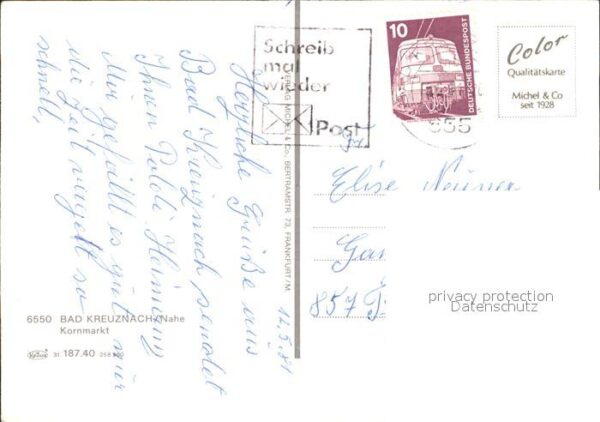 Herzliche Grüße aus
Bad Kreuznach sendet
Ihnen Poldi Heimann
Mir gefällt es gut nur
die Zeit vergeht so
schnell.
12.5.81
6550 BAD KREUZNACH/Nahe
Kornmarkt
31 187.40
VERLAG MICHEL & Co., BERTRAMSTR. 73, FRANKFURT/M.
Schreib
mal
wieder
Post
10
DEUTSCHE BUNDESPOST
655
Color
Qualitätskarte
Michel & Co
seit 1928
Elise Neuner
857
privacy protection
Datenschutz